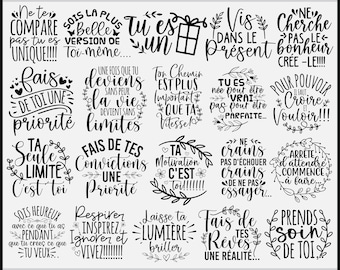 Ne te
COMPARE
pas tu es
UNIQUE!!!!
SOIS LA PLUS
Belle
VERSION DE
Toi-même....
Tu es
un
Vis
DANS LE
Présent
NE
Cherche
PAS LE
bonheur
CRÉE-LE!!!!
Fais
DE TOI UNE
priorité
UNE FOIS QUE TU
deviens
SANS PEUR
la vie
DEVIENT SANS
limites
Ton Chemin
EST PLUS
Important
QUE TA
Vitesse!
TU ES
née pour être
VRAI
PAS PARFAIT
pour être
POUR POUVOIR
IL FAUT
Croire
ET
Vouloir!!!
TA
Seule
LIMITE
C'est toi
FAIS DE TES
Convictions
UNE
PRIORITÉ
TA
Motivation
C'EST
toi!!!!!
NE
crains
PAS D'ÉCHOUER
crains
DE NE PAS
essayer...
ARRÊTE
d'attendre
COMMENCE
à faire...
SOIS HEUREUX
avec ce que tu as
PENDANT
que tu crées ce que
TU VEUX
Respirer
INSPIREZ
Ignorer et
VIVEZ!!!!!!
Laisse ta
LUMIÈRE
briller
Fais de
TES
Rêves
UNE RÉALITÉ...
PRENDS
SOIN
DE TOI